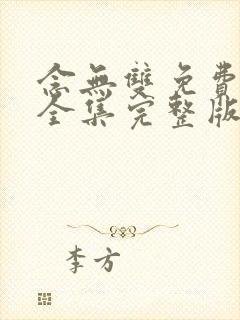 念無雙免費
全集完整版
李方